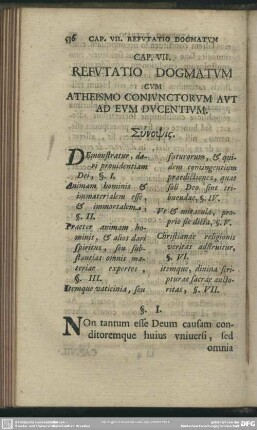 536 CAP. VII. REFUTATIO DOGMATUM
CAP. VII.
REFUTATIO DOGMATVM
CVM
ATHEISMO CONIVNCTORVM AVT
AD EVM DVCENTIVM.
Σύνοψις.
DEmonstratur, da-
ri providentiam
Dei, §. I.
Animam hominis &
immaterialem esse,
& immortalem,
§. II.
Præter animam ho-
minis, & alios dari
spiritus, seu sub-
stantias omnis ma-
teriæ expertes,
§. III.
Itemque vaticinia, seu
futurorum, & qui-
dem contingentium
prædictiones, quæ
soli Deo sint tri-
buendæ, §. IV.
Vt & miracula, pro-
prie sic dicta, §. V.
Christianæ religionis
veritas adstruitur,
§. VI.
itemque, divina scri-
pturae sacrae aucto-
ritas, §. VII.
§. I.
NOn tantum esse Deum causam con-
ditoremque huius vniuersi, sed
omnia